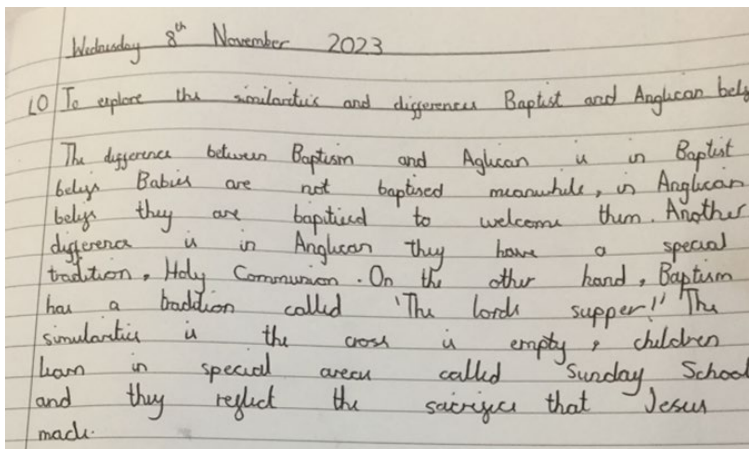 Wednesday 8th November 2023
LO To explore the similarities and differences Baptist and Anglican belifs
The difference between Baptism and Aglican is in Baptist
belifs Babies are not baptised meanwhile, in Anglican
belifs they are baptised to welcome them. Another
difference is in Anglican they have a special
tradition, Holy Communion. On the other hand, Baptism
has a tradition called 'The lords supper!' The
simularities is the cross is empty, children
learn in special areas called Sunday School
and they reflect the sacrifices that Jesus
made.